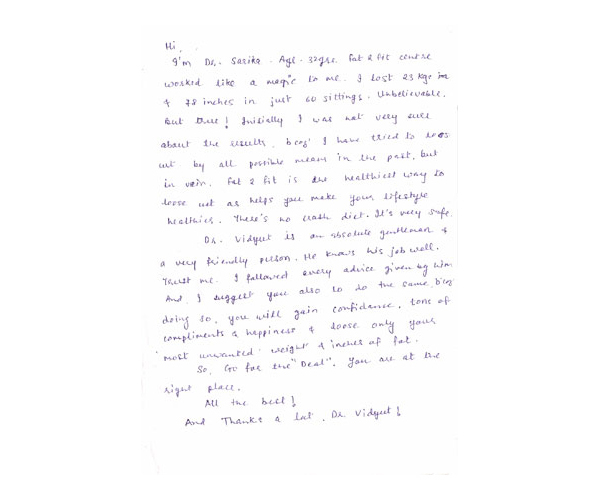 Hi,
I'm Dr. Sarika. Age - 32yrs. Fat 2 fit centre
worked like a magic to me. I lost 23 kgs in
& 78 inches in just 60 sittings. Unbelievable.
But true! Initially I was not very sure
about the results, bcoz' I have tried to loos
wt by all possible means in the past, but
in vain. Fat 2 fit is the healthiest way to
loose wt as helps you make your lifestyle
healthier. There's no crash diet. It's very safe.
Dr. Vidyut is an absolute gentleman &
a very friendly person. He knows his job well.
Trust me. I followed every advice given by him.
And, I suggest you also to do the same, b'coz
doing so, you will gain confidance, tons of
compliments & happiness & loose only your
"most unwanted" weight & inches of fat.
So, Go for the "Deal". You are at the
right place.
All the best!
And Thanks a lot, Dr Vidyut!